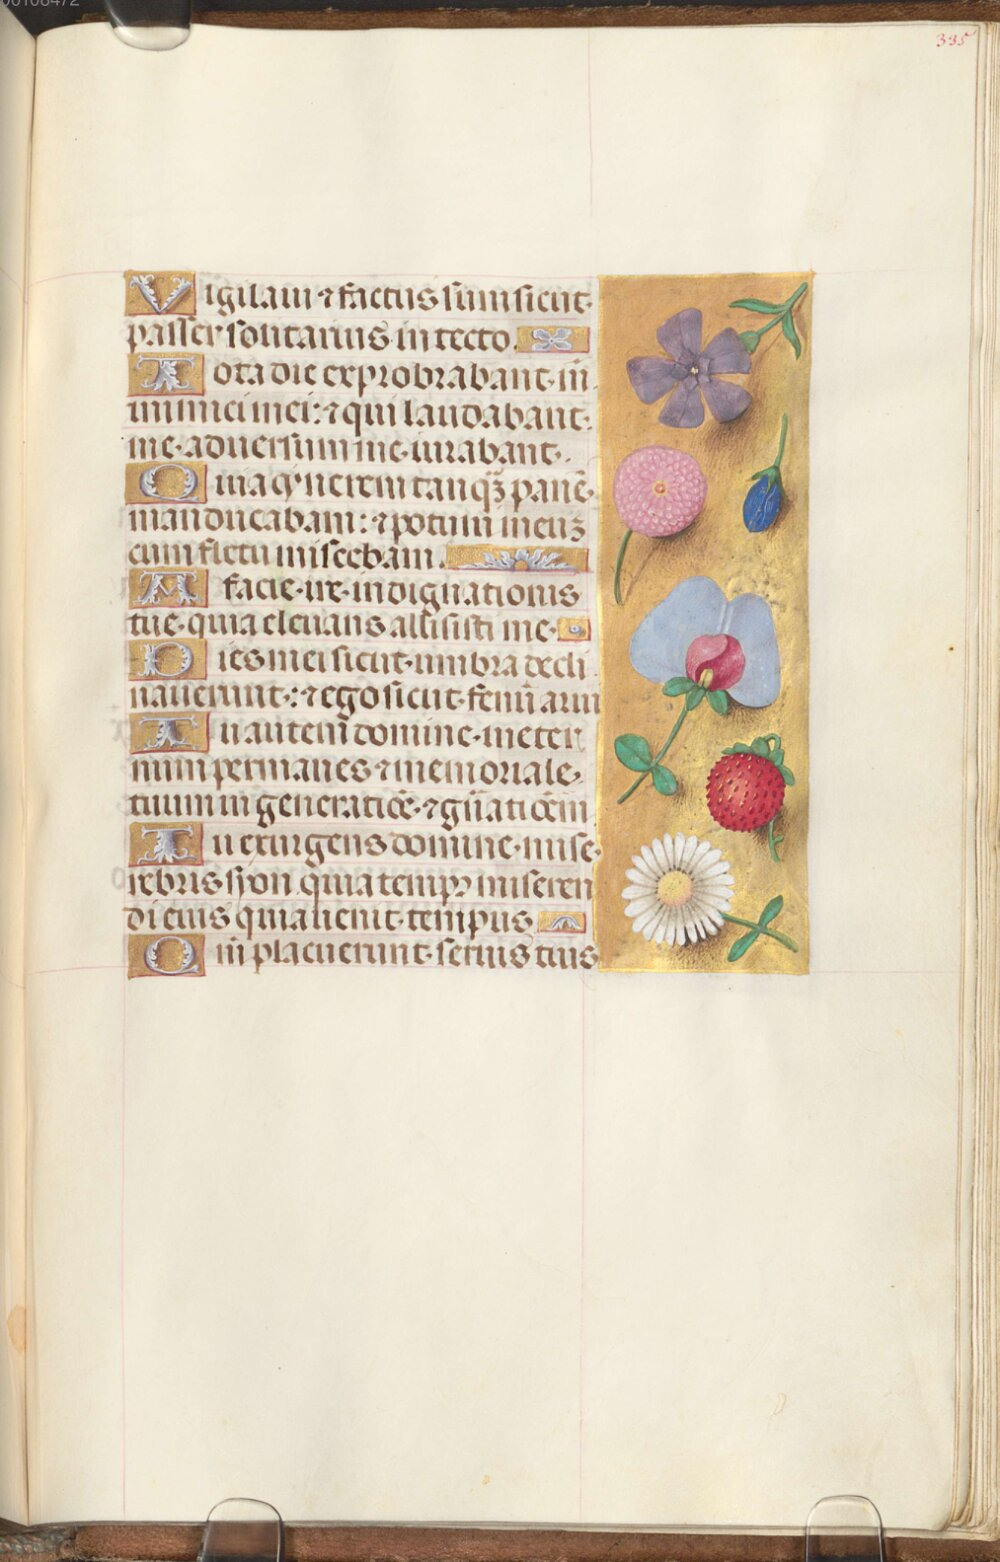 335
Vigilaui ⁊ factus sum sicut
passer solitarius in tecto.
Tota die exprobrabant in
imimici mei: ⁊ qui laudabant
me aduersum me iurabant.
Quia cinerem tanqȝ panē
manducabam: ⁊ potum meuȝ
cum fletu miscebam.
A facie ire indignationis
tue quia eleuans allisisti me
Dies mei sicut umbra decli
nauerunt: ⁊ ego sicut fenū arui
Tu autem domine in eter
num permanes ⁊ memoriale
tuum in generatiōe ⁊ gn̄atiōem
Tu exurgens domine mise
reberis syon quia tempꝰ miseren
di eius quia uenit tempus
Qm̄ placuerunt seruis tuis